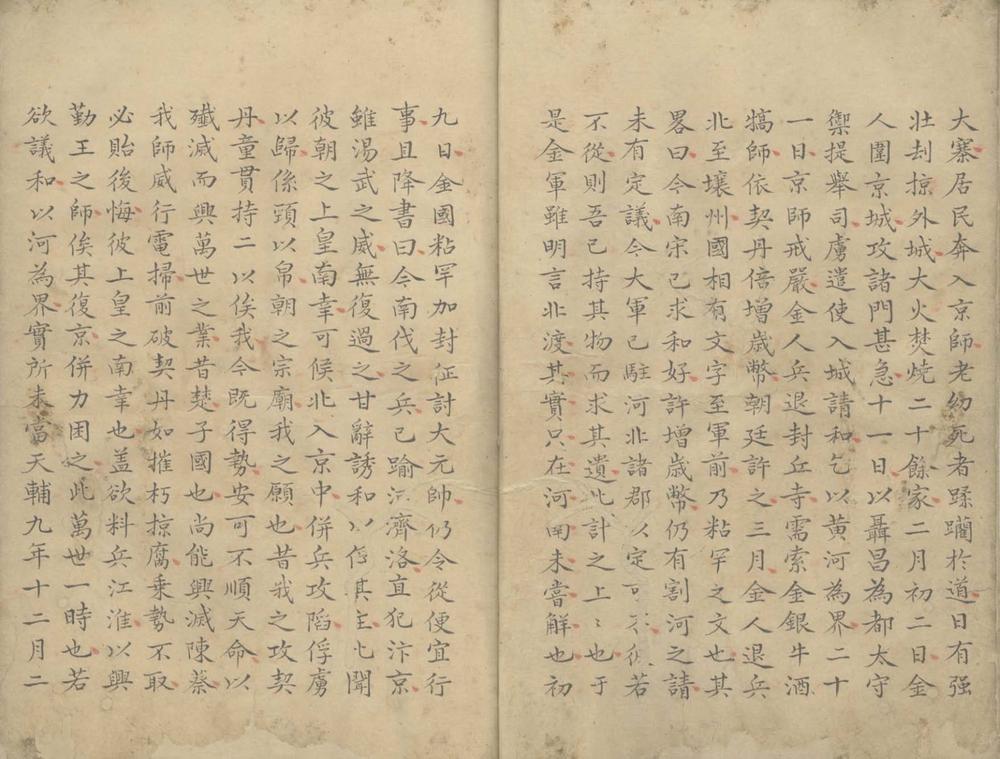 大寨居民奔入京師老幼死者蹂躪於道日有强
壯刦掠外城大火焚燒二十餘家二月初二日金
人圍京城攻諸門甚急十一日以聶昌為都太守
禦提舉司虜遣使入城請和乞以黃河為界二十
一日京師戒嚴金人兵退封丘寺需索金銀牛酒
犒師依契丹倍增歲幣朝廷許之三月金人退兵
北至壤州國相有文字至軍前乃粘罕之文也其
畧曰今南宋已求和好許增歲幣仍有割河之請
未有定議今大軍已駐河北諸郡以定可若
不從則吾已持其物而求其遺此計之上〻也于
是金軍雖明言北渡其實只在河南未嘗解也初
九日金國粘罕加封征討大元帥仍令從便宜行
事且降書曰今南伐之兵已踰河濟洛直犯汴京
雖湯武之威無復過之甘辭誘和以俘其主也聞
彼朝之上皇南幸可候北入京中併兵攻䧟俘虜
以歸係頸以帛朝之宗廟我之願也昔我之攻契
丹童貫持二以俟我今既得勢安可不順天命以
殲滅而興萬世之業昔楚子國也尚能興滅陳蔡
我師威行電掃前破契丹如摧朽掠腐乗勢不取
必貽後悔彼上皇之南幸也盖欲料兵江淮以興
勤王之師俟其復京併力困之此萬世一時也若
欲議和以河為界實所未當天輔九年十二月二